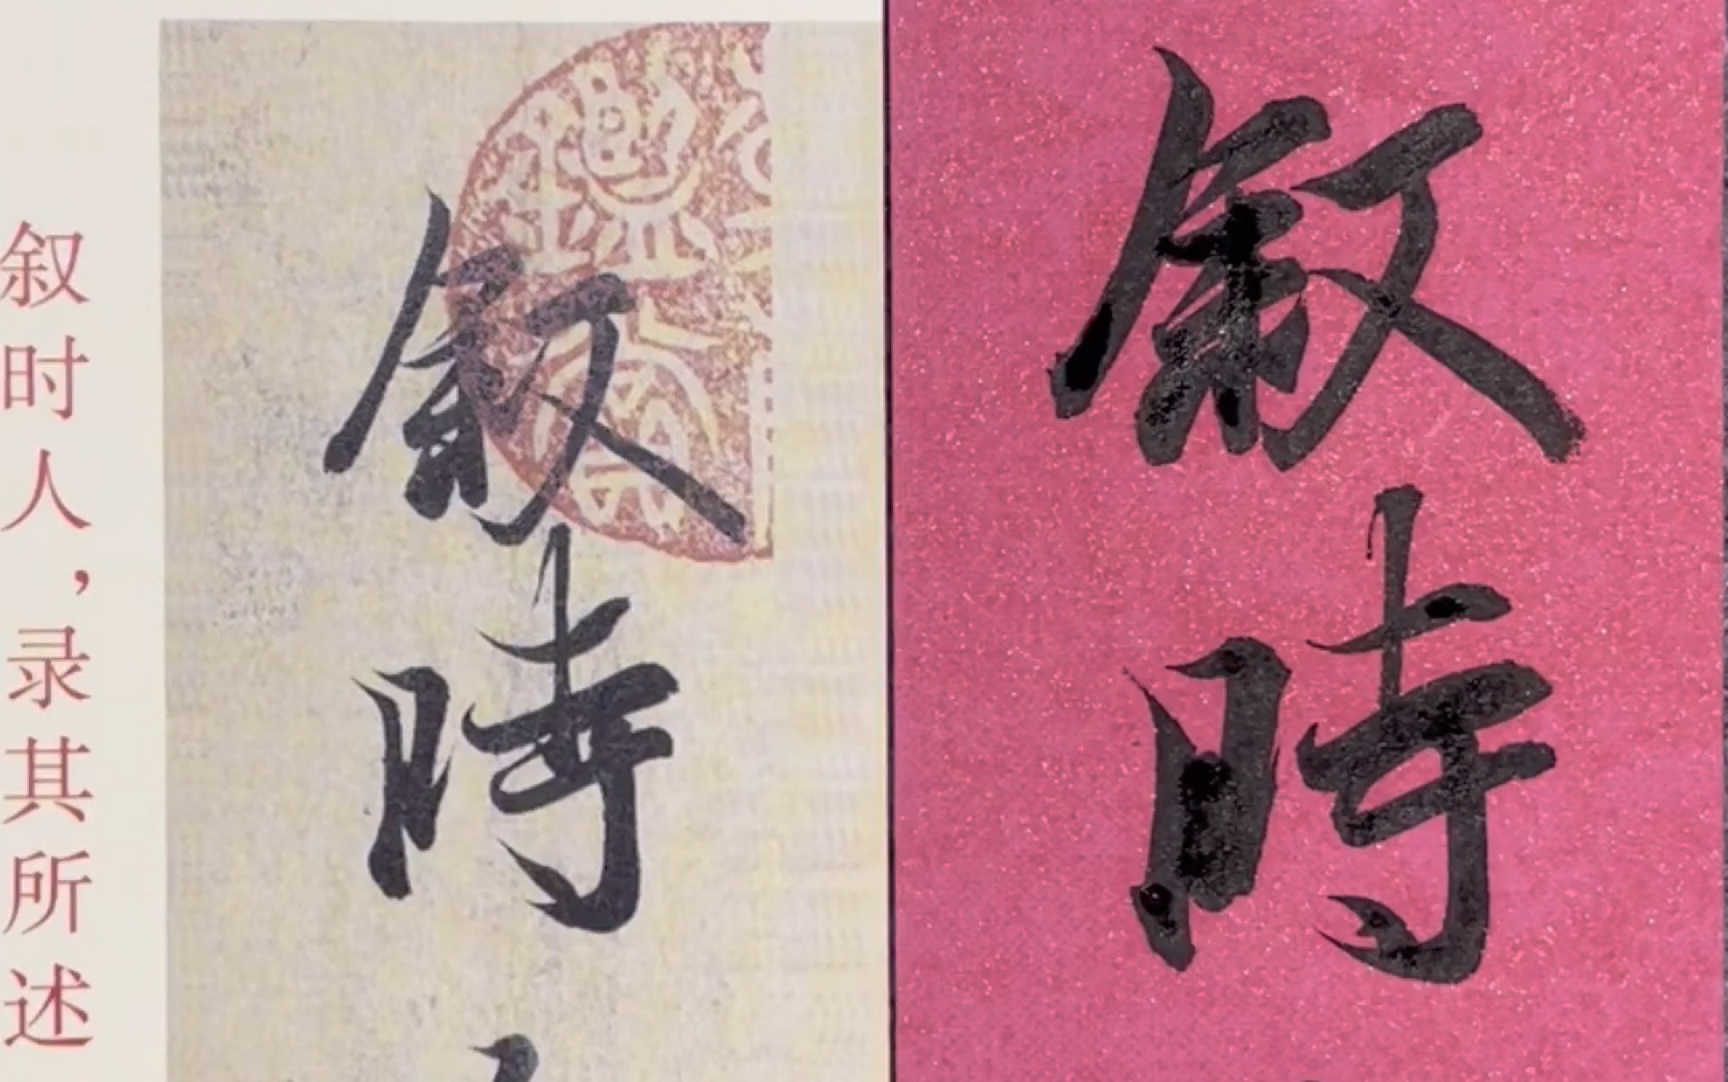 叙时人，录其所述
叙時
叙時